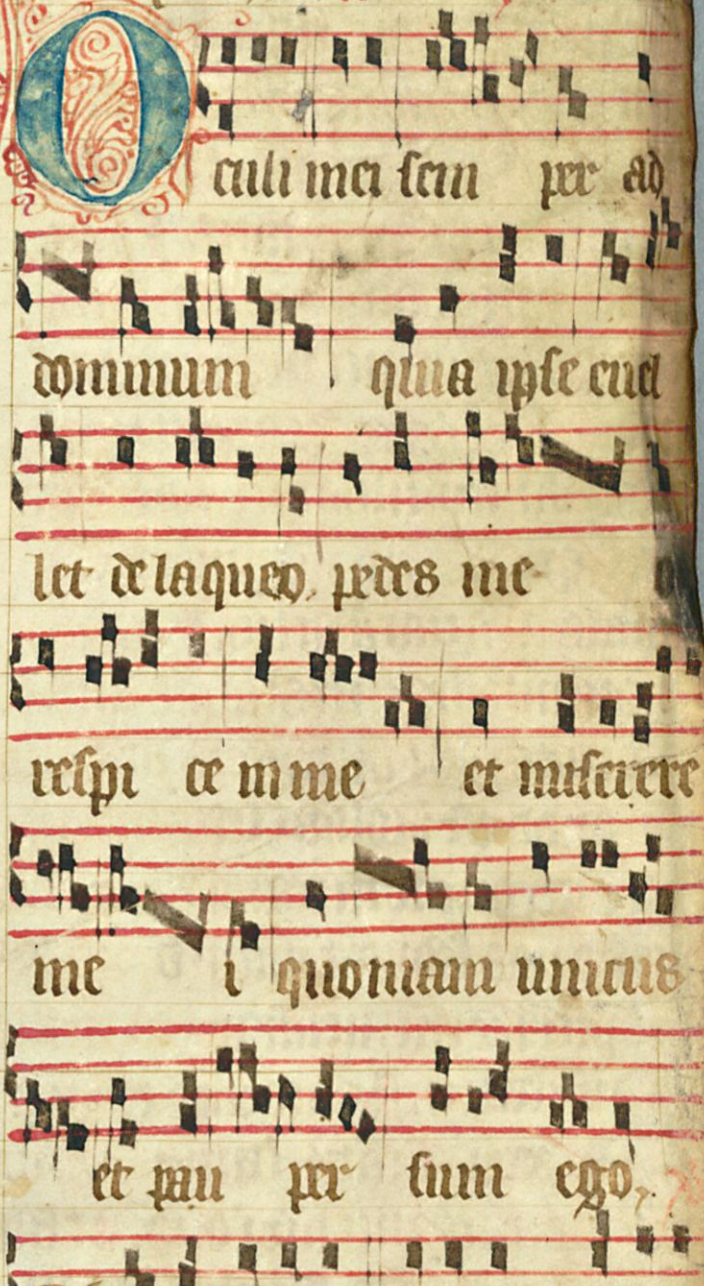 Oculi mei sem per ad
dominum quia ipse evel
let de laqueo, pedes me o
respi ce in me et miserere
me i quoniam unicus
et pau per sum ego,